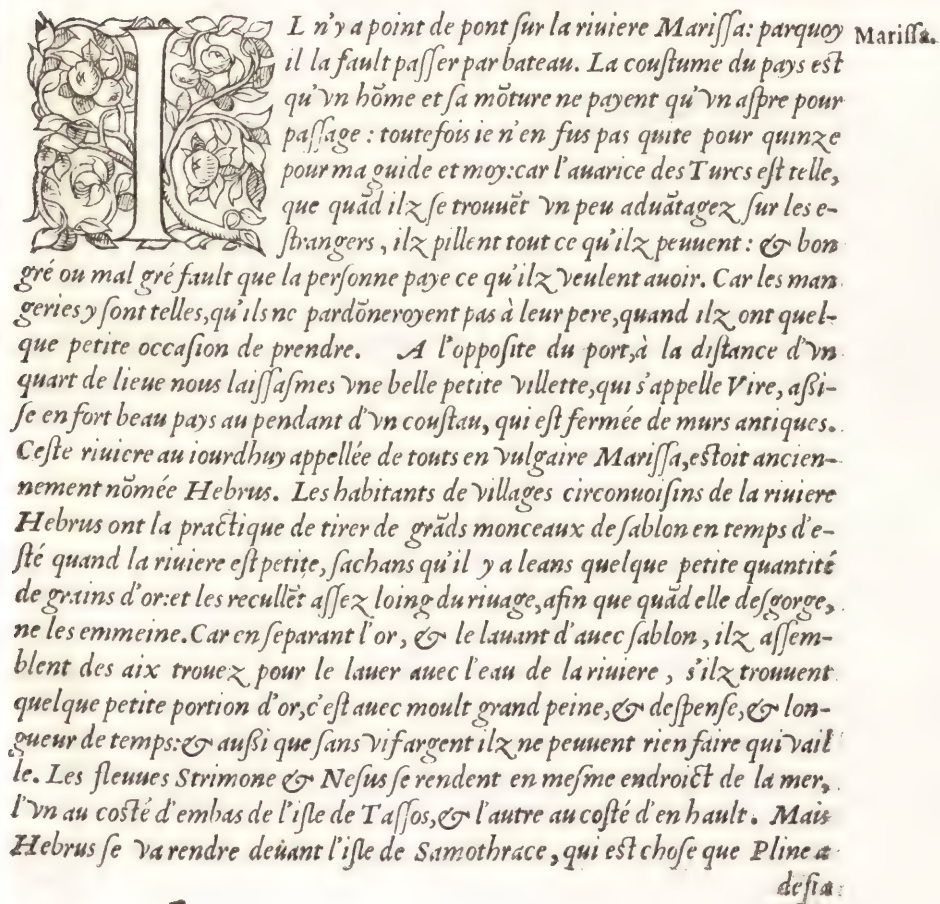 IL n'y a point de pont ſur la riuiere Mariſſa: parquoy
Mariſſa.
il la fault paſſer par bateau. La couſtume du pays eſt
qu'vn hõme et ſa mõture ne payent qu'vn aſpre pour
paſſage : toutefois ie n'en fus pas quite pour quinze
pour ma guide et moy:car l'auarice des Turcs eſt telle,
que quãd ilz ſe trouuẽt vn peu aduãtagez ſur les e-
ſtrangers, ilz pillent tout ce qu'ilz peuuent : & bon
gré ou mal gré fault que la perſonne paye ce qu'ilz veulent auoir. Car les man
geries y ſont telles,qu'ils ne pardõneroyent pas à leur pere,quand ilz ont quel-
que petite occaſion de prendre. A l'oppoſite du port,à la diſtance d'vn
quart de lieue nous laiſſaſmes vne belle petite villette,qui s'appelle Vire, aßi-
ſe en fort beau pays au pendant d'vn couſtau, qui eſt fermée de murs antiques.
Ceſte riuiere au iourdhuy appellée de touts en vulgaire Mariſſa,eſtoit ancien-
nement nõmée Hebrus. Les habitants de villages circonuoiſins de la riuiere
Hebrus ont la practique de tirer de grãds monceaux de ſablon en temps d'e-
ſté quand la riuiere eſt petite, ſachans qu'il y a leans quelque petite quantité
de grains d'or:et les recullẽt aſſez loing du riuage,afin que quãd elle deſgorge,
ne les emmeine.Car en ſeparant l'or, & le lauant d'auec ſablon, ilz aſſem-
blent des aix trouez pour le lauer auec l'eau de la riuiere, s'ilz trouuent
quelque petite portion d'or,c'eſt auec moult grand peine,& deſpenſe,& lon-
gueur de temps:& außi que ſans vif argent ilz ne peuuent rien faire qui vail
le. Les fleuues Strimone & Neſus ſe rendent en meſme endroict de la mer,
l'vn au coſté d'embas de l'iſle de Taſſos,& l'autre au coſté d'en hault. Mais
Hebrus ſe va rendre deuant l'iſle de Samothrace, qui eſt choſe que Pline a
deſia